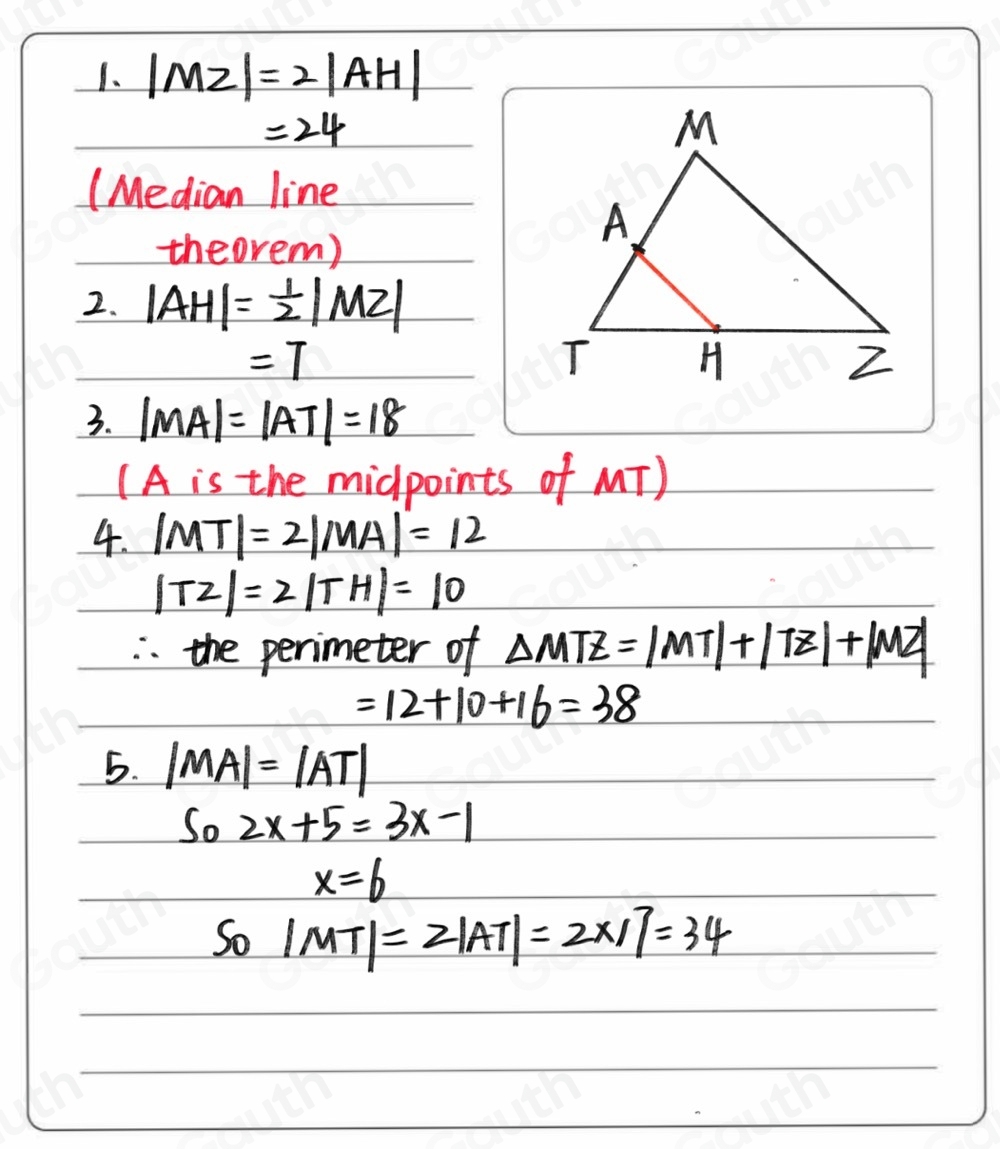 1. |MZ| = 2|AH|
= 24
(Median line
theorem)
2. |AH| = 1/2|MZ|
= 7
3. |MA| = |AT| = 18
(A is the midpoints of MT)
4. |MT| = 2|MA| = 12
|TZ| = 2|TH| = 10
∴ the perimeter of △MTZ = |MT| + |TZ| + |MZ|
= 12 + 10 + 16 = 38
5. |MA| = |AT|
So 2x + 5 = 3x - 1
x = 6
So |MT| = 2|AT| = 2×17 = 34
M
A
T
H
Z
Gauth